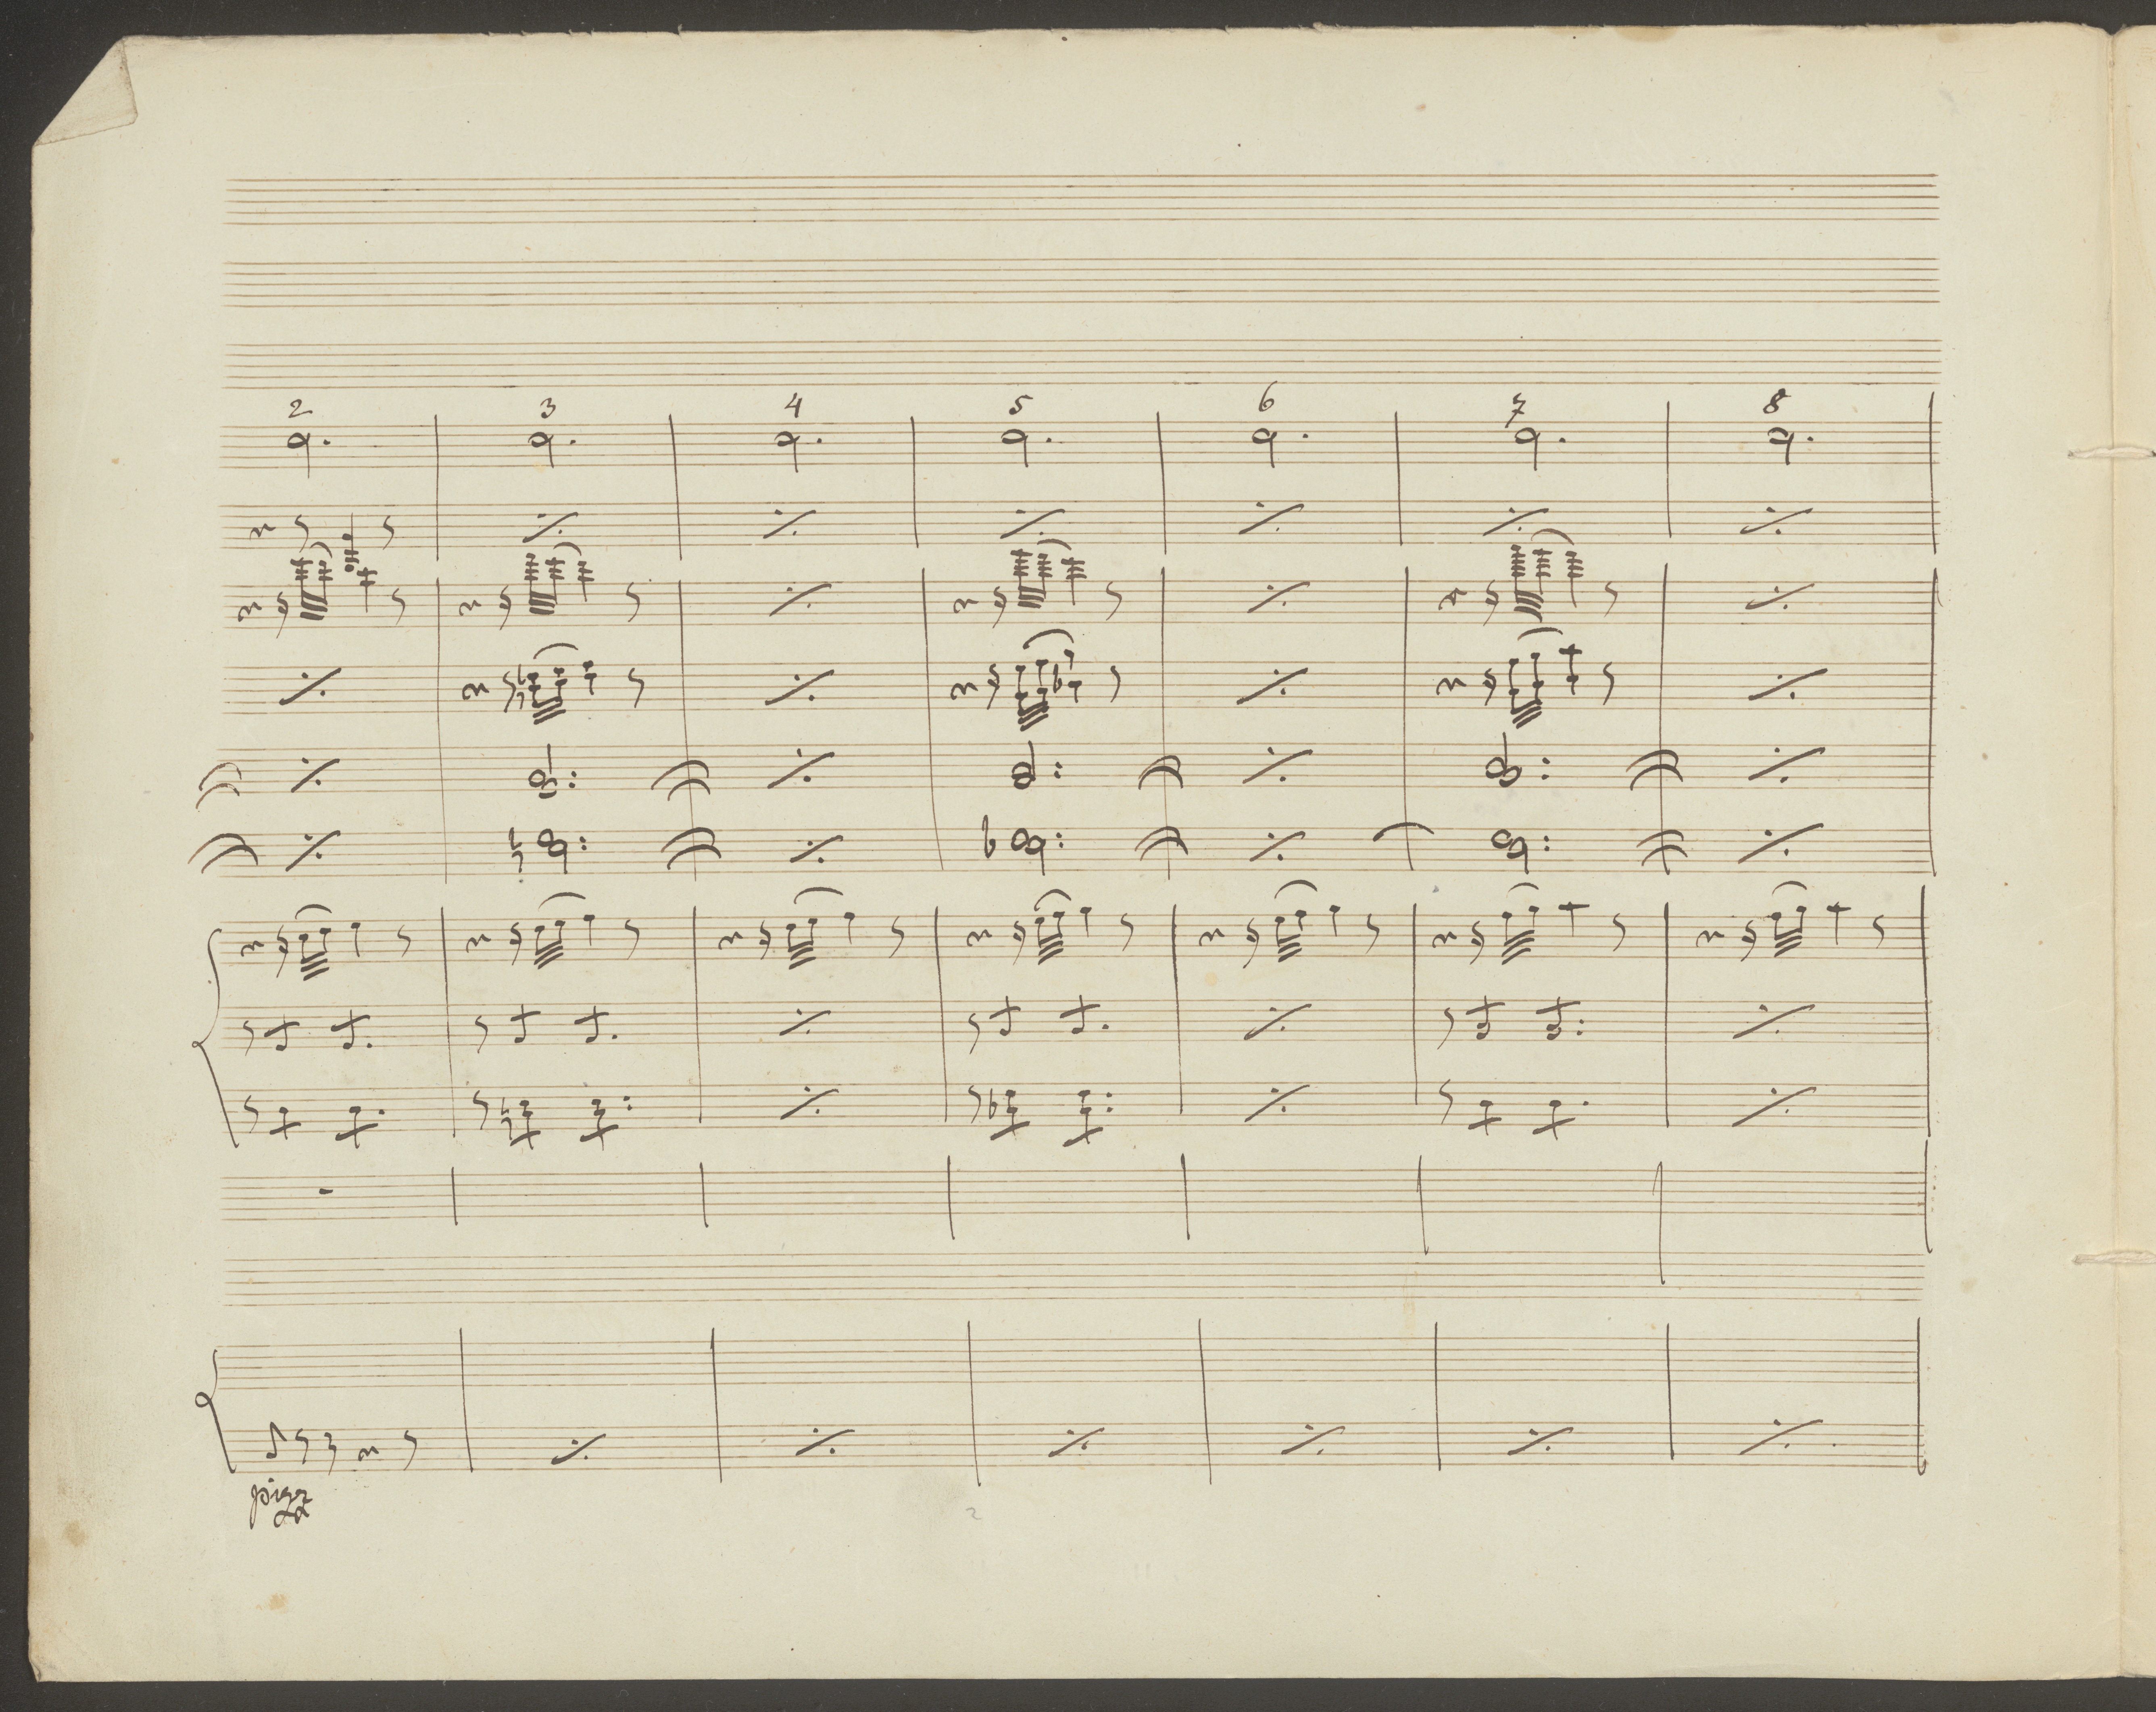 2 3 4 5 6 7 8
pizz
2